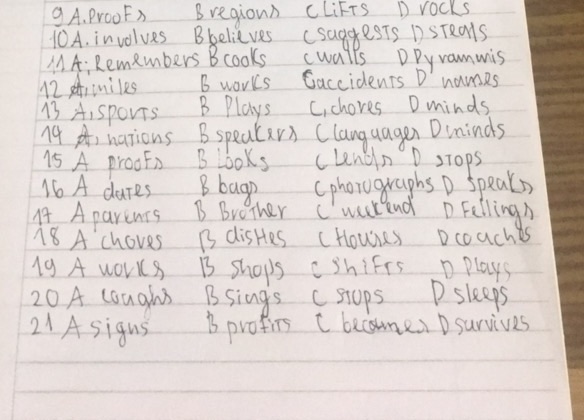 9 A. Proofs B regions C LiFTs D rocks
10 A. involves B believes C suggests D STeals
11 A; Remembers B cooks C walls D Pyrammis
12 A, miles B works C accidents D names
13 A, sports B Plays C, chores D minds
14 A, nations B speakers C languages D minds
15 A proofs B Looks C Lends D stops
16 A dates B bags C photographs D speaks
17 A parents B Brother C weekend D Fellings
18 A choves B dishes C Houses D coaches
19 A works B shops C shifts D Plays
20 A coughs B sings C stops D sleeps
21 A signs B profits C becomes D survives